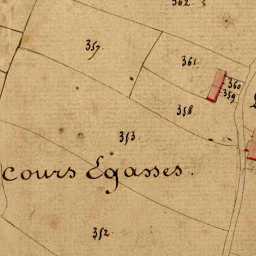 362
357
361
360
359
358
353
cours Egasses.
352